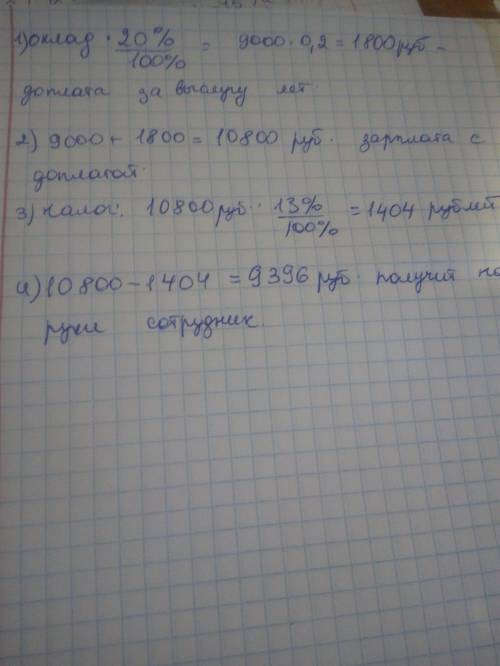 1) оклад · 20%/100% = 9000 · 0,2 = 1800 руб –
доплата за выслугу лет.
2) 9000 + 1800 = 10800 руб. зарплата с
доплатой.
3) налог: 10800 руб · 13%/100% = 1404 рублей
4) 10800 – 1404 = 9396 руб. получит на
руки сотрудник.